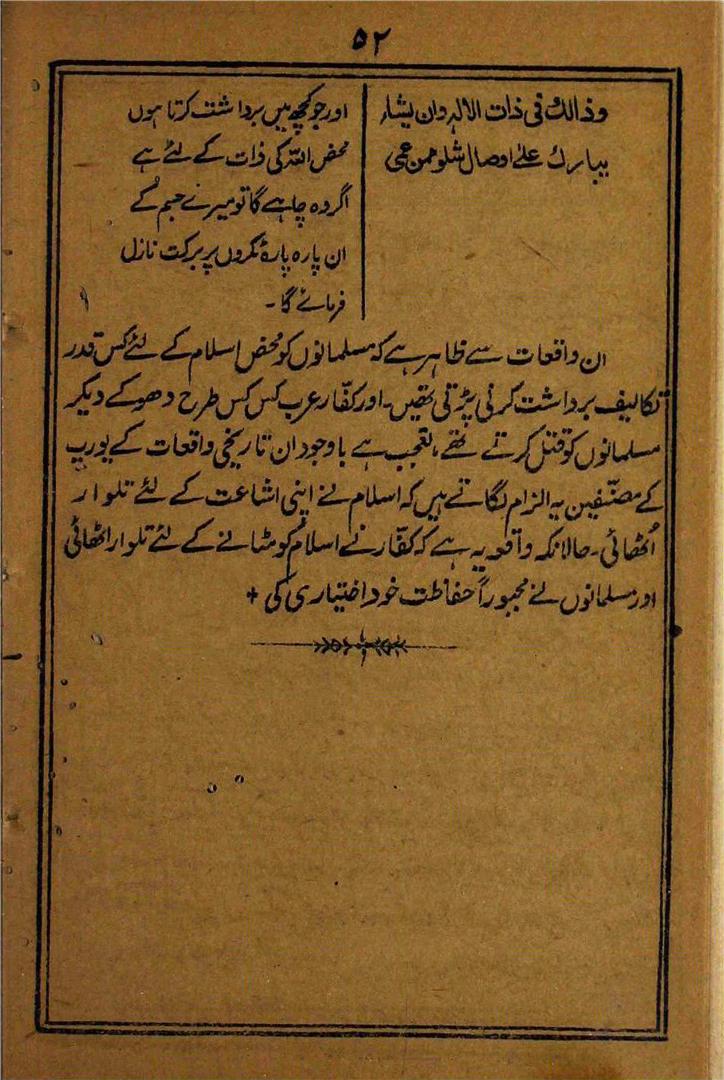 ۵۲
وذالك فی ذات الالہ وان یشاء
یبارك علےٰ اوصال شلو ممن عجی
اور جو کچھ میں برداشت کرتا ہوں
محض اللہ کی ذات کے لئے ہے
اگر وہ چاہے گا تو میرے جسم کے
ان پارہ پارۂ ٹکروں پر برکت نازل
فرمائے گا ۔
ان واقعات سے ظاہر ہے کہ مسلمانوں کو محض اسلام کے لئے کس قدر
تکالیف برداشت کرنی پڑتی تھیں ۔ اور کفّار عرب کس کس طرح دھوکے دیکر
مسلمانوں کو قتل کرتے تھے ، تعجب ہے باوجود ان تاریخی واقعات کے یورپ
کے مصنّفین یہ الزام لگاتے ہیں کہ اسلام نے اپنی اشاعت کے لئے تلوار
اُٹھائی ۔ حالانکہ واقعہ یہ ہے کہ کفّار نے اسلام کو مٹانے کے لئے تلوار اٹھائی
اور مسلمانوں نے مجبوراً حفاظت خود اختیاری کی +